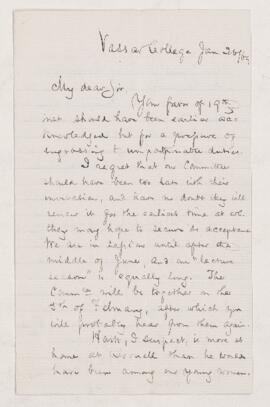 Vassar College Jan 26/69
My dear Sir,
Your favor of 19th
inst should have been earlier ac-
knowledged but for a pressure of
engrossing & unpostponable duties.
I regret that our Committee
should have been too late with their
invitation, and have no doubt they will
renew it for the earliest time at wh.
they may hope to secure its acceptance
We are in session until after the
middle of June, and our "lecture
season" is equally long. The
Comm'ee will be together on the
5th of February, after which you
will probably hear from them again.
Hartt, I suspect, is more at
home at Cornell than he would
have been among our young women.